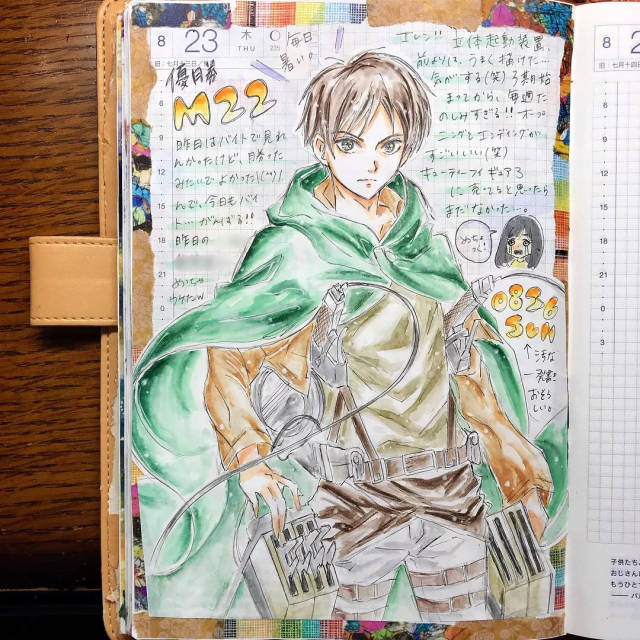 8 23 木 THU 235
旧・七月十三日
8 2
旧・七月十四
毎日
暑い。
優勝
M22
昨日はバイトで見れ
んかったけど、勝った
みたいでよかった(ω)
んで、今日もバイ
いいがんばる!!
昨日の
めっちゃ
ウケたw
エレン 立体起動装置
前よりは、うまく描けた…
気がする(笑)3期始
まってから、毎週た
のしみすぎる!!オープ
ニングとエンディングが
すごいいい(笑)
キューティーフィギュア3
まだなかった…。
0826
SUN
↑
一発書き
おそろ
しい。
6
9
12
15
18
21
0
3
子供たち
おじさん
もうひと